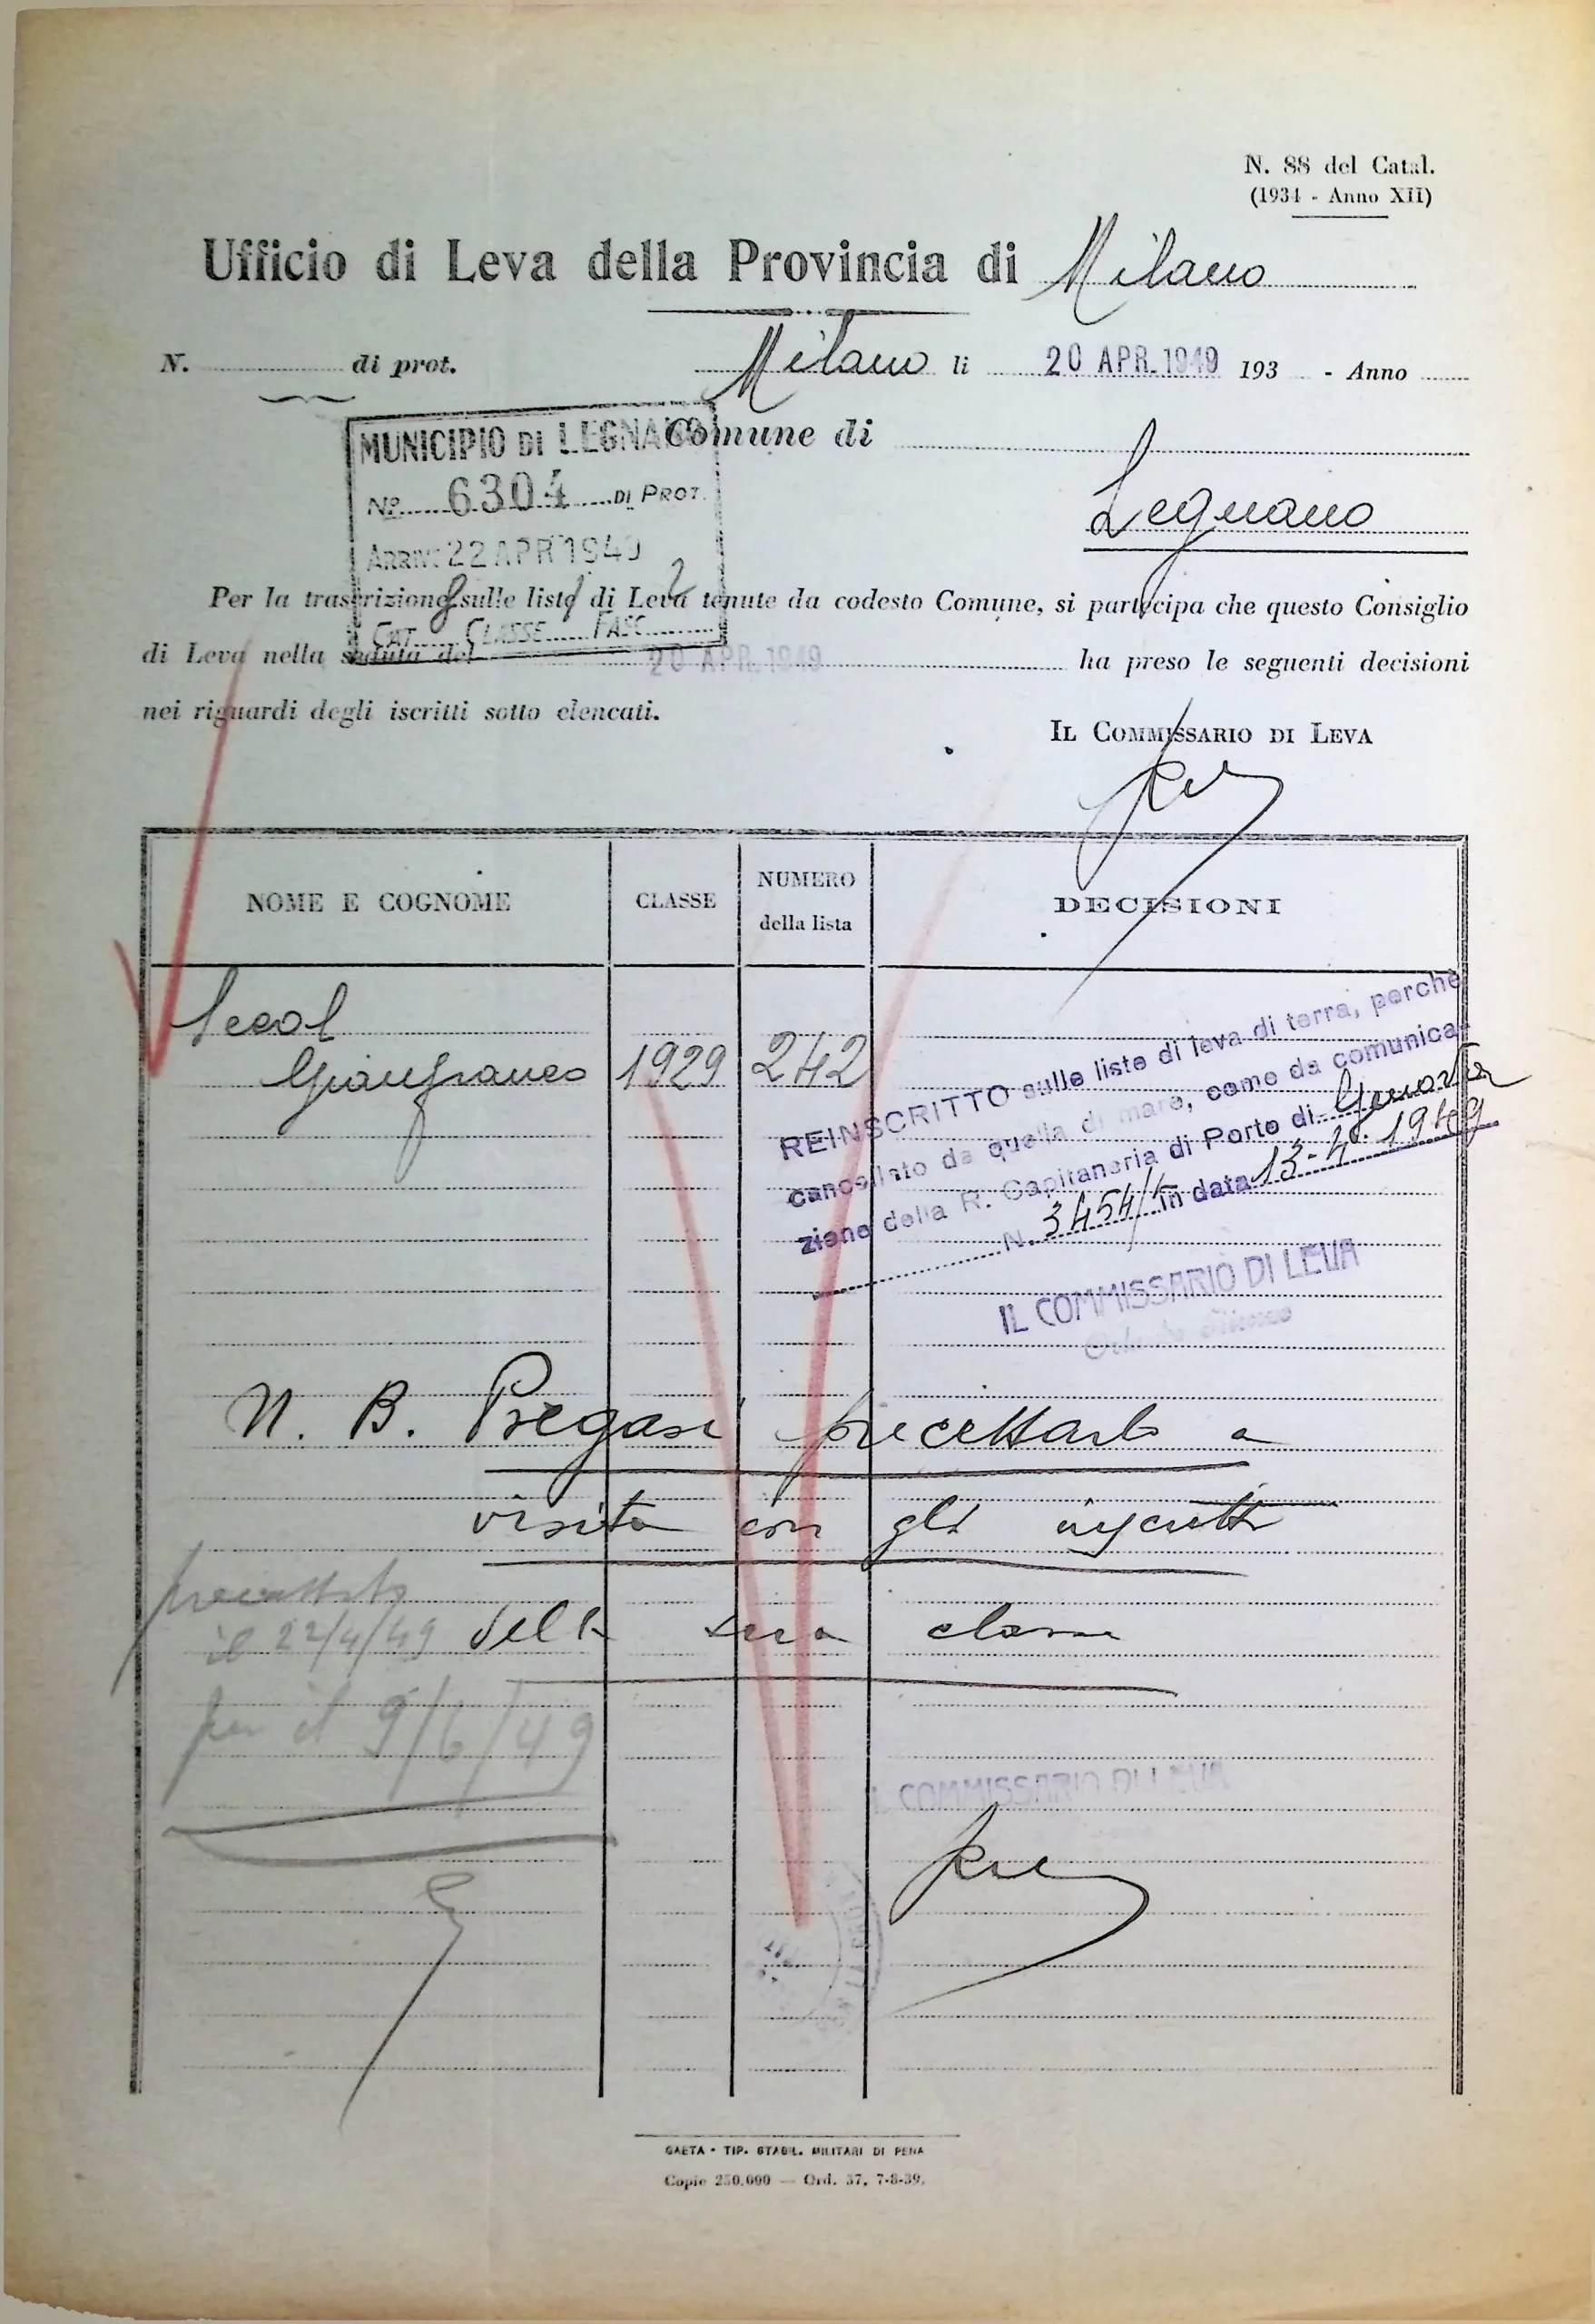 N. 88 del Catal.
(1934 - Anno XII)
Ufficio di Leva della Provincia di Milano
N. di prot.
Milano li 20 APR. 1949 193 - Anno
MUNICIPIO DI LEGNANO
Nº 6304 DI PROT.
ARRIV. 22 APR 1949
CAT. 8 CLASSE 1 FASC. 2
Comune di
Legnano
Per la trascrizione sulle liste di Leva tenute da codesto Comune, si partecipa che questo Consiglio
di Leva nella seduta del 20 APR. 1949 ha preso le seguenti decisioni
nei riguardi degli iscritti sotto elencati.
IL COMMISSARIO DI LEVA
NOME E COGNOME CLASSE NUMERO della lista DECISIONI
Gianfranco 1929 242
REINSCRITTO sulle liste di leva di terra, perchè
cancellato da quella di mare, come da comunica-
zione della R. Capitaneria di Porto di Genova
N. 3454/ in data 13-4-1949
IL COMMISSARIO DI LEVA
N. B. Pregasi precettarlo a
visita con gli inscritti
della sua classe
precettato
il 22/4/49
per il 9/6/49
IL COMMISSARIO DI LEVA
GAETA - TIP. STABIL. MILITARI DI PENA
Copie 250.000 — Ord. 37, 7-8-39.